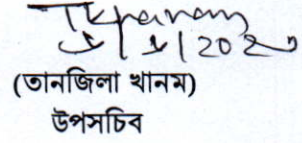 (তানজিলা খানম)
উপসচিব